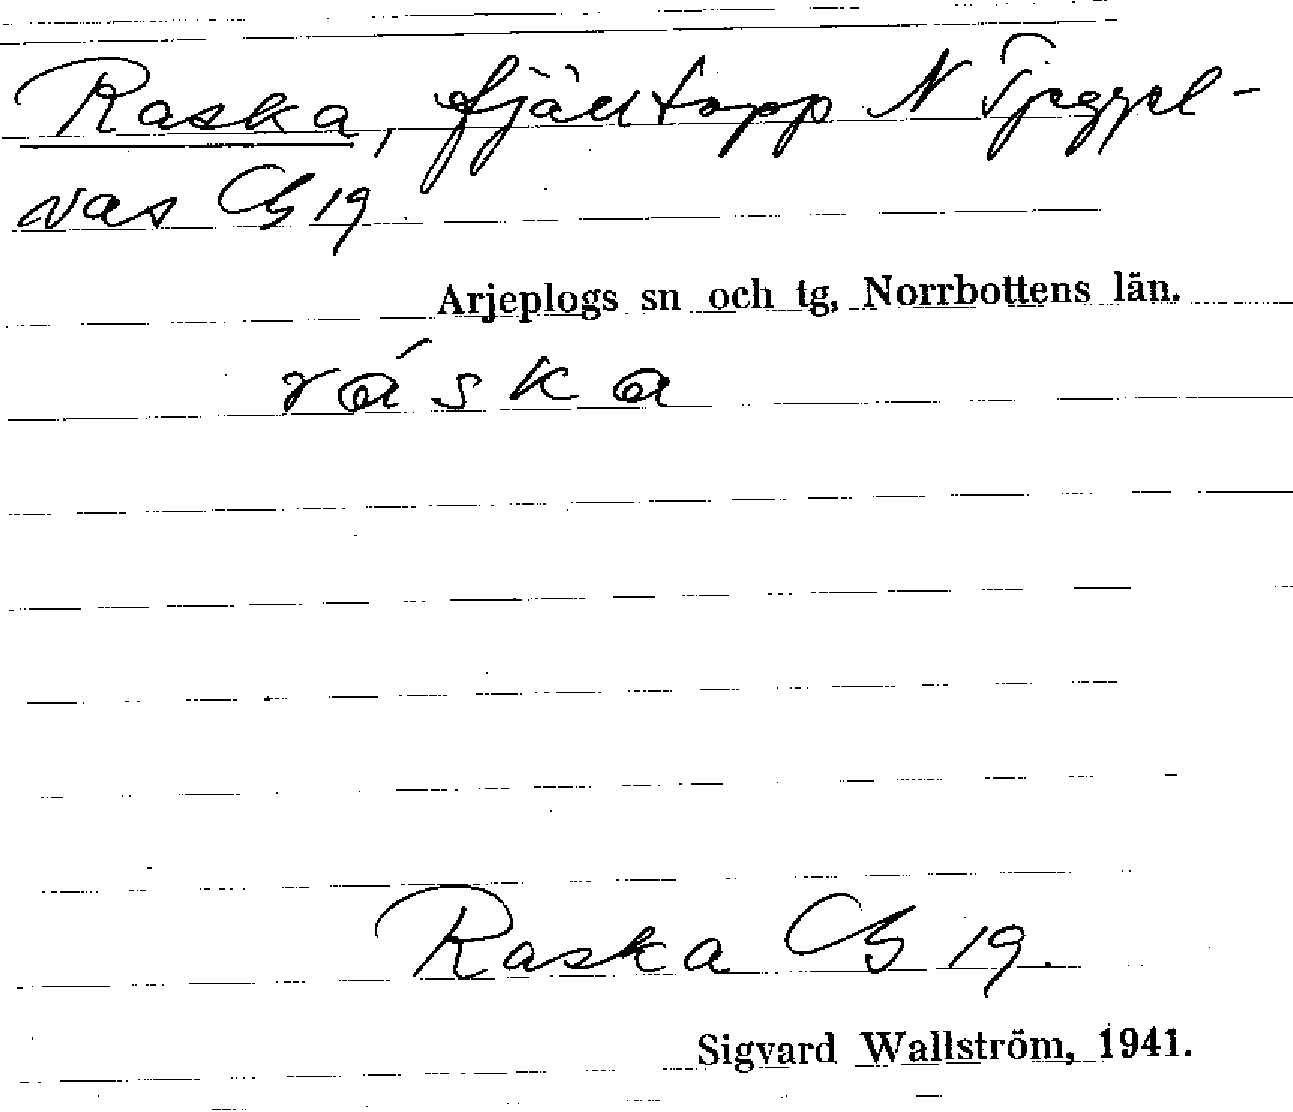 Raska, fjälltopp N Tjeggel-
vas G 19
Arjeplogs sn och tg, Norrbottens län.
ráska
Raska G 19.
Sigvard Wallström, 1941.